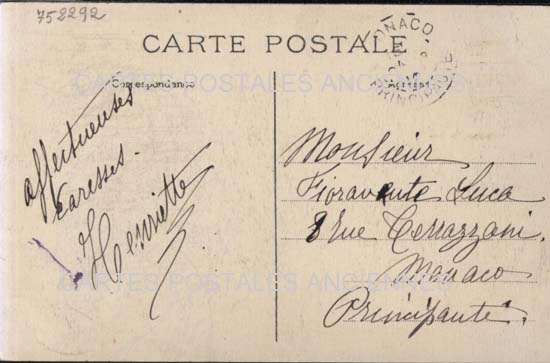 752292
CARTE POSTALE
MONACO
PRINCIPAUTÉ
Correspondance
affectueuses
Caresses.
Henriette
Monsieur
Fioravente Luca
8 rue Terrazzani.
Monaco
Principauté.
CARTES POSTALES ANCIENNES
CARTES POSTALES ANCIENNES